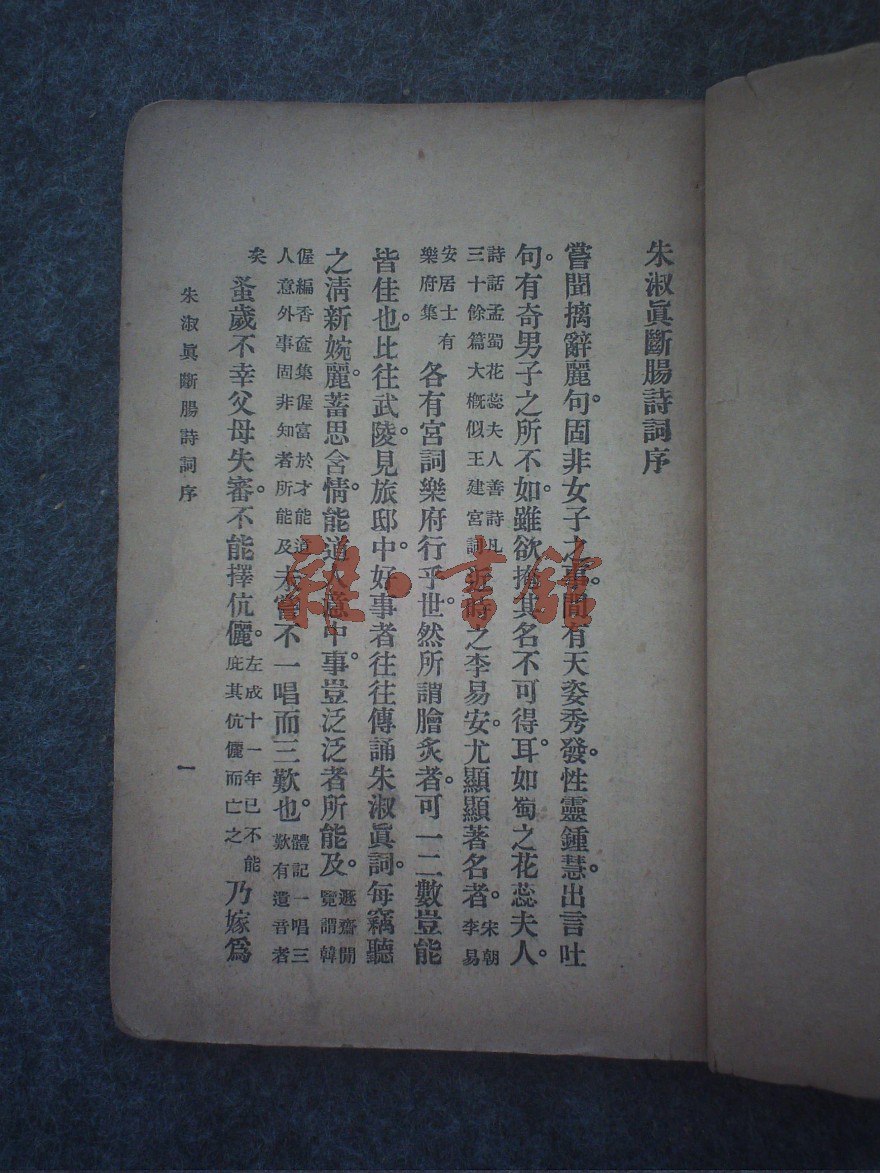 朱淑眞斷腸詩詞序
嘗聞摛辭麗句。固非女子之事。間有天姿秀發。性靈鍾慧。出言吐
句。有奇男子之所不如。雖欲掩其名不可得耳。如蜀之花蕊夫人。
詩話孟蜀花蕊夫人善詩凡三十餘篇大概似王建宮詞近時之李易安。尤顯顯著名者。宋朝李易
安居士有樂府集各有宮詞樂府行乎世。然所謂膾炙者。可一二數豈能
皆佳也。比往武陵。見旅邸中。好事者往往傳誦朱淑眞詞。每竊聽
之淸新婉麗。蓄思含情。能道人意中事。豈泛泛者所能及。遯齋閒覽謂韓
偓編香奩集偓富於才能道人意外事固非知者所能及未嘗不一唱而三歎也。體記一唱三歎有遺音者
矣蚤歲不幸父母失審。不能擇伉儷。左成十一年已不能庇其伉儷而亡之乃嫁爲
朱淑眞斷腸詩詞序
一
雜·書館